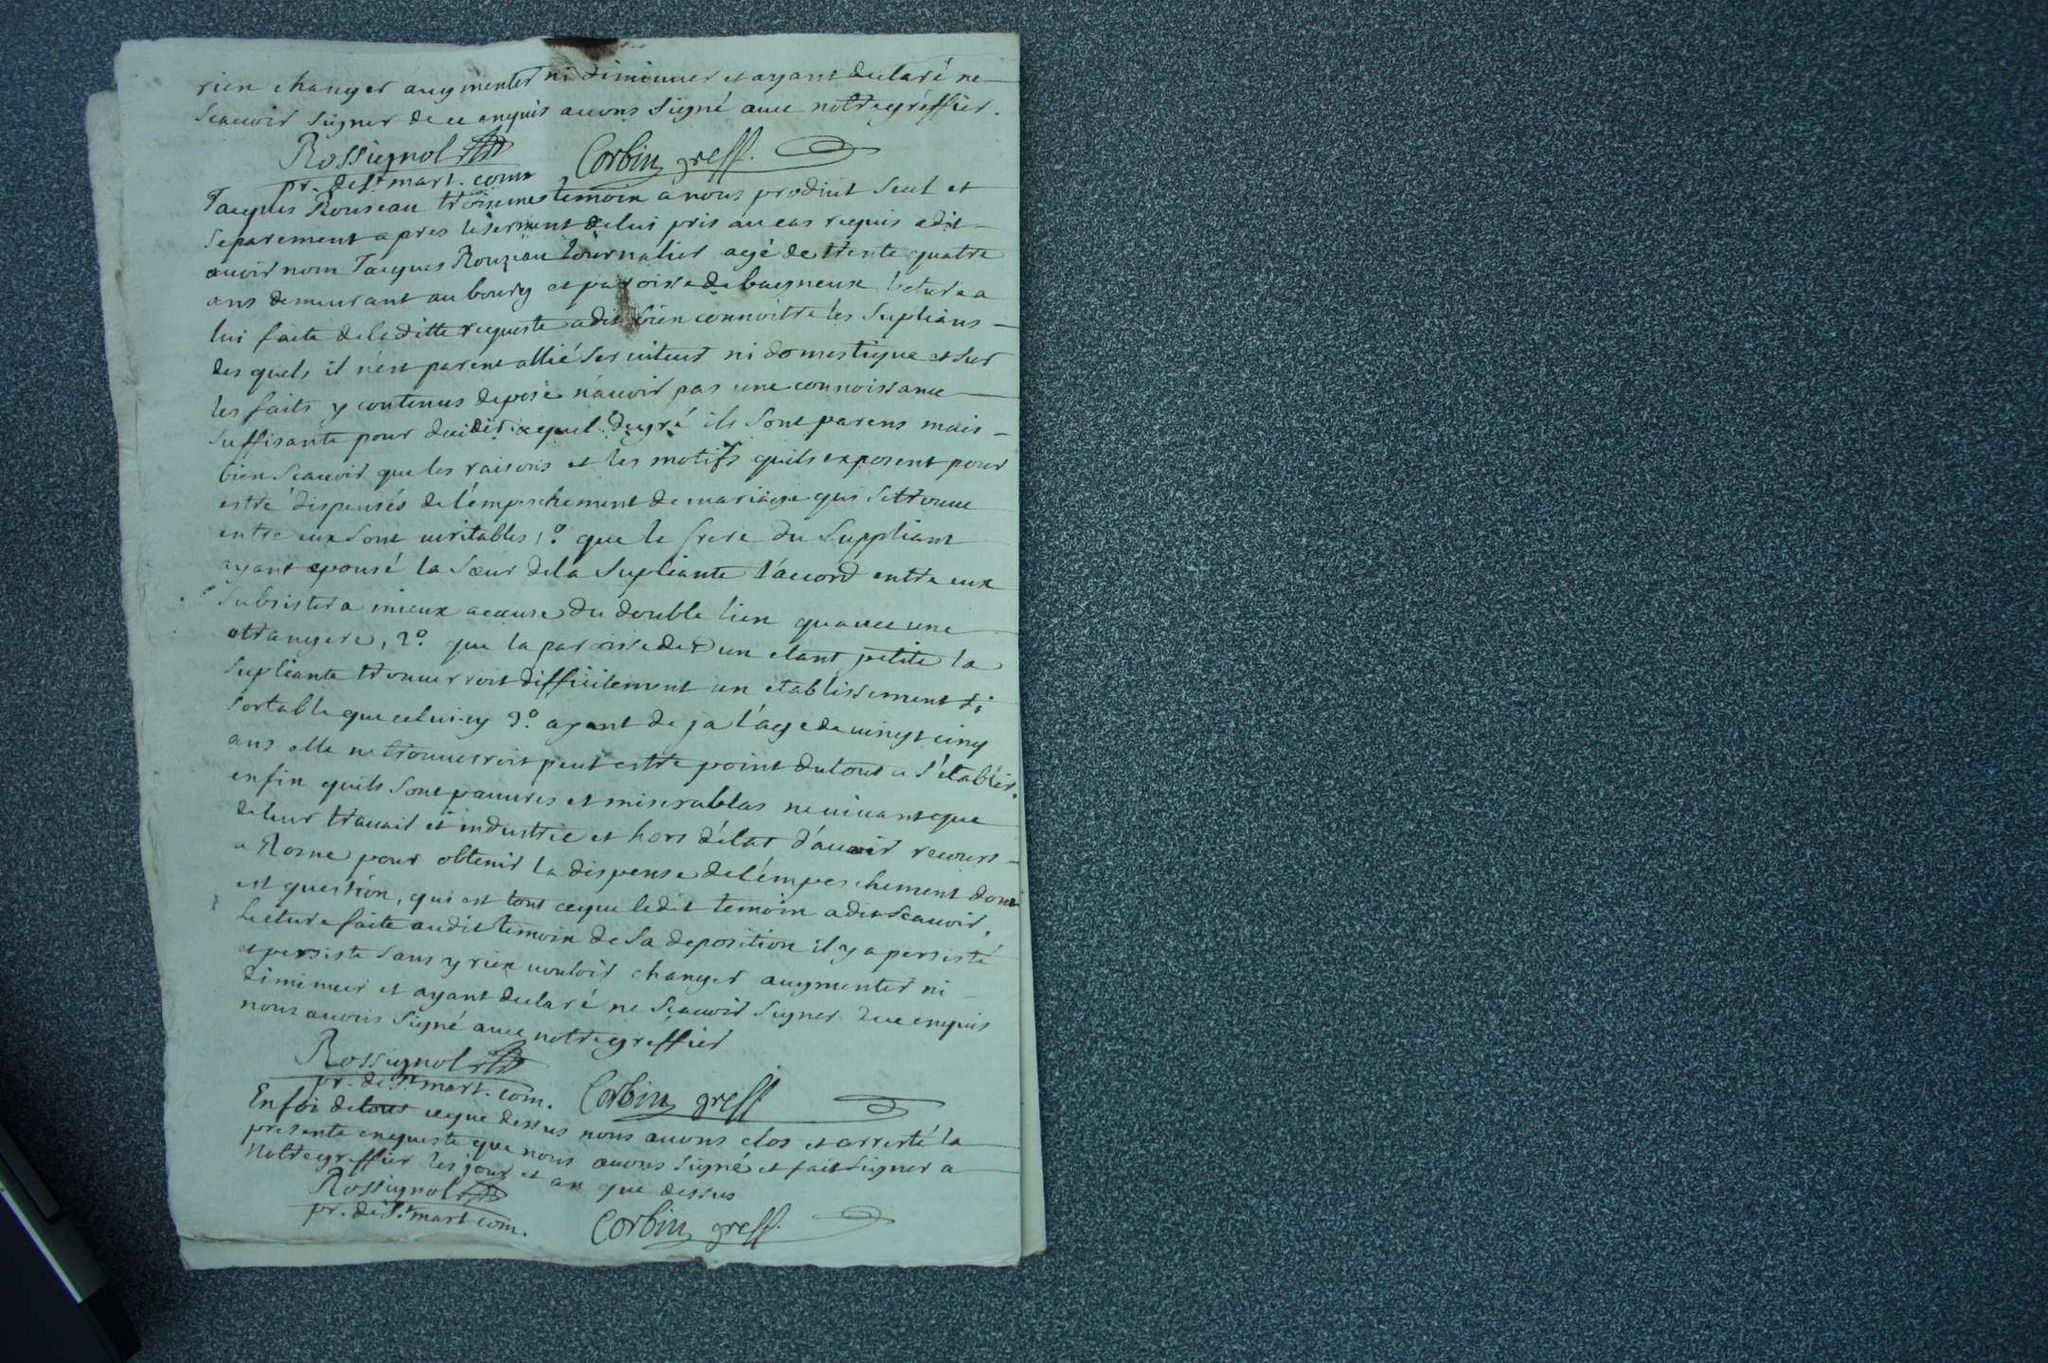 rien changer augmenter ni diminuer et ayant declaré ne
scavoir signer de ce enquis avons signé avec notre greffier.
Rossignol Corbin greff.
pr. de St. mart. com.
Jacques Rouseau troisieme temoin a nous produit seul et
separement apres le serment de lui pris au cas requis a dit
avoir nom Jacques Rouzeau Journalier agé de trente quatre
ans demeurant au bourg et paroisse de bagneux lecture a
lui faite de la ditte requeste a dit bien connoitre les suplians
des quels il n'est parent allié serviteur ni domestique et sur
les faits y contenus depose n'avoir pas une connoissance
suffisante pour decider a quel degré ils sont parens mais
bien scavoir que les raisons et les motifs quils exposent pour
estre dispensés de l'empeschement de mariage qui se trouve
entre eux sont veritables 1.º que le frere du suppliant
ayant epousé la sœur de la supliante l'accord entre eux
subsistera mieux a cause du double lien qu'avec une
etrangere, 2.º que la paroisse de un etant petite la
supliante trouverroit difficilement un etablissement si
sortable que celui-cy 3.º ayant de ja l'age de vingt cinq
ans elle ne trouverroit peut estre point du tout a s'établir.
enfin quils sont pauvres et miserables ne vivant que
de leur travail et industrie et hors d'état d'avoir recours
a Rome pour obtenir la dispense de l'empeschement dont
est question, qui est tout ce que ledit temoin a dit scavoir.
lecture faite audit temoin de sa deposition il y a persisté
et persiste sans y rien vouloir changer augmenter ni
diminuer et ayant declaré ne scavoir signer de ce enquis
nous avons signé avec notre greffier
Rossignol
pr. de St. mart. com. Corbin greff
En foi de tout ce que dessus nous avons clos et arresté la
presente enqueste que nous avons signé et fait signer a
notre greffier les jour et an que dessus
Rossignol
pr. de St. mart com. Corbin greff.